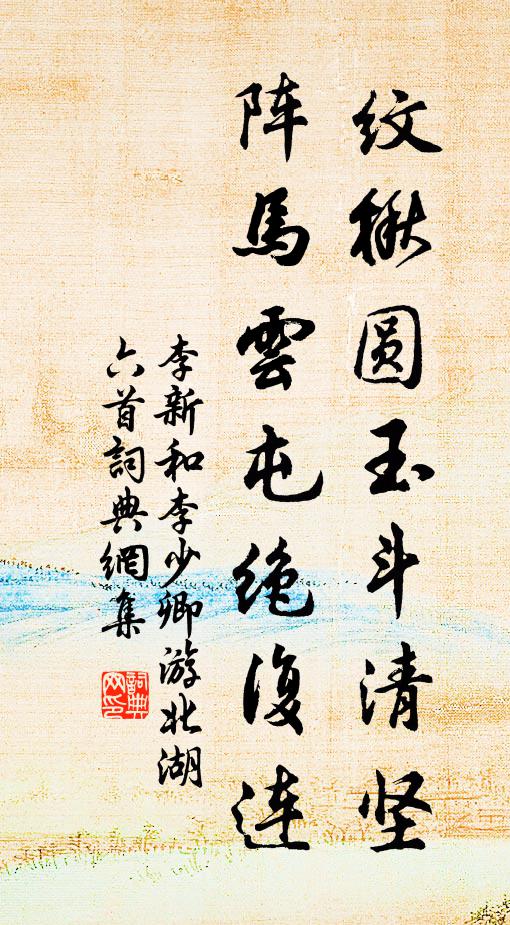 纹楸圆玉斗清坚
阵馬雲屯绝復连
李新和李少卿游北湖
六首詞典網集
詞典网印